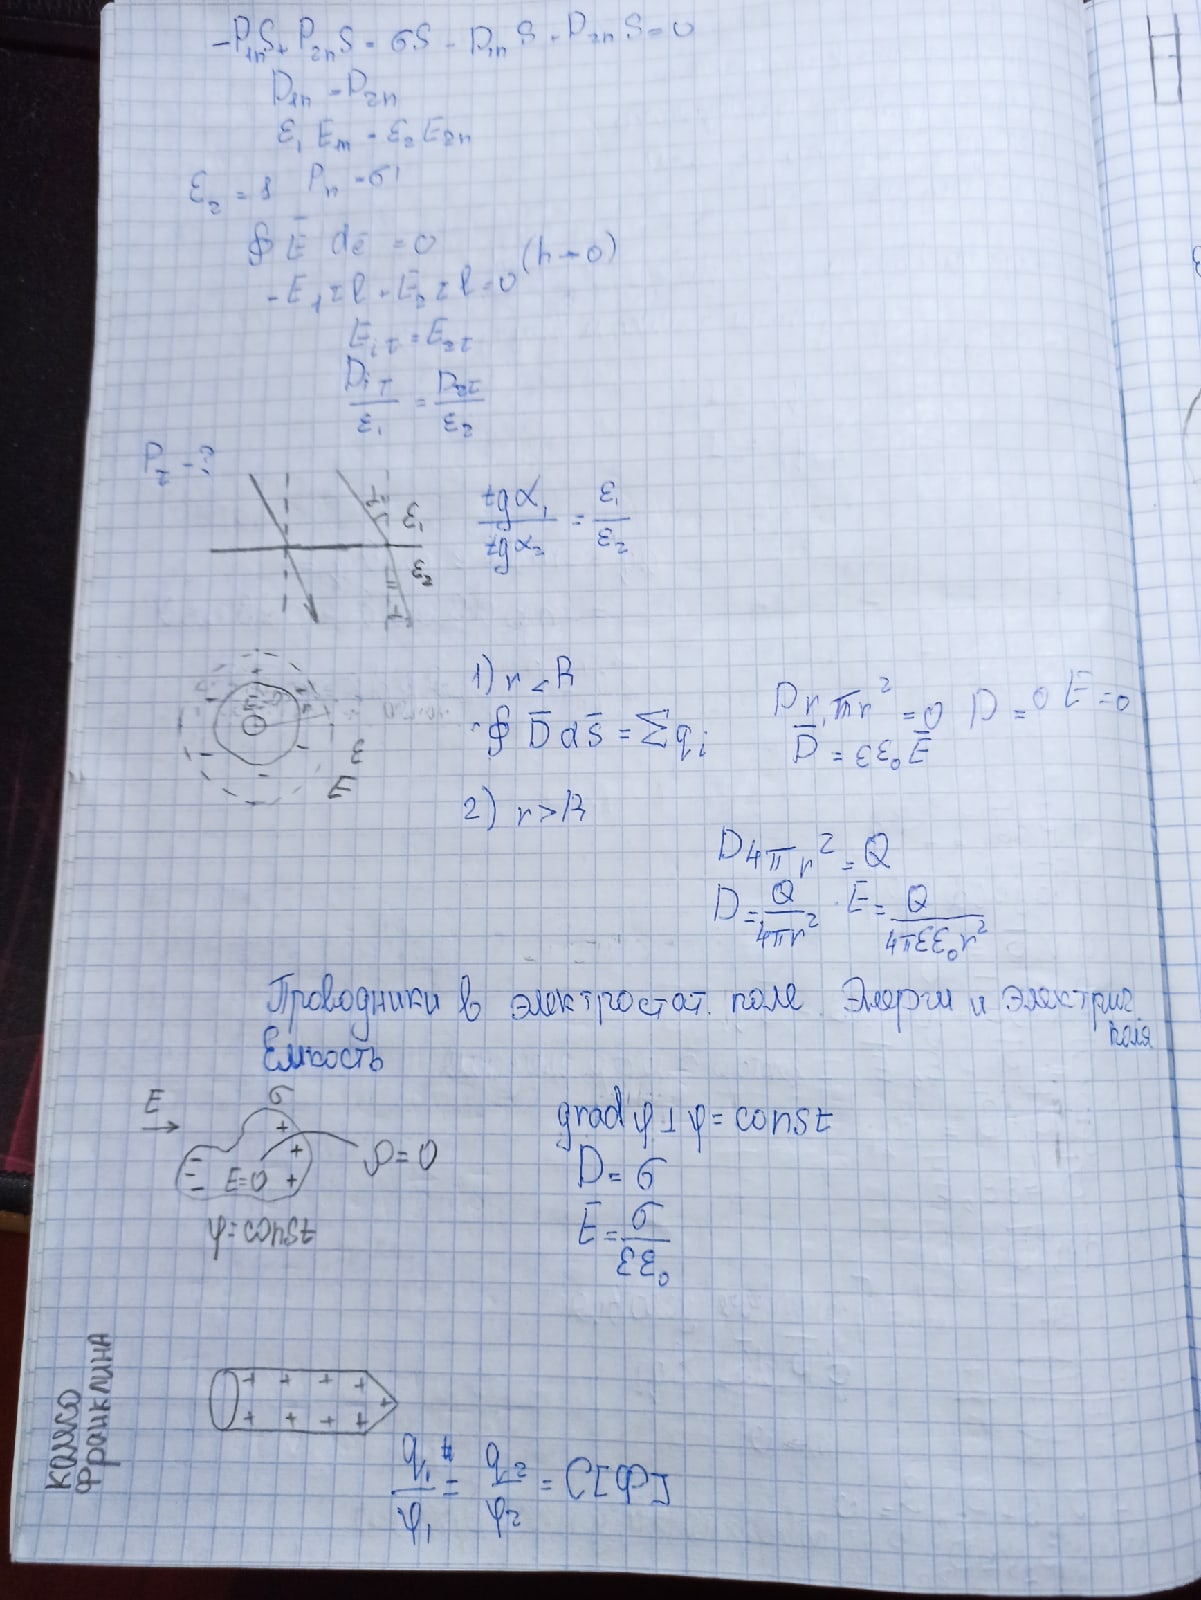 -P₁ₙS + P₂ₙS = σS - D₁ₙS - D₂ₙS = 0
D₁ₙ = D₂ₙ
ε₁ E₁ₙ = ε₂ E₂ₙ
ε₂ = 1 Pₙ = σ'
∮ Ē dē = 0
-E₁τ l + E₂τ l = 0 (h→0)
E₁τ = E₂τ
D₁τ/ε₁ = D₂τ/ε₂
P₂ - ?
ε₁
ε₂
tgα₁/tgα₂ = ε₁/ε₂
1) r < R
∮ D̄ dS̄ = Σqᵢ
D = 0 E = 0
D̄ = εε₀Ē
ε
E
2) r > R
D4πr² = Q
D = Q/4πr² E = Q/4πεε₀r²
Проводники в электростат. поле Энерги и электрич
поля
Емкость
E
σ
E=0
ρ=0
φ=const
gradφ ⊥ φ=const
D = σ
E = σ/εε₀
колесо
Франклина
q₁/φ₁ = q₂/φ₂ = C[Ф]